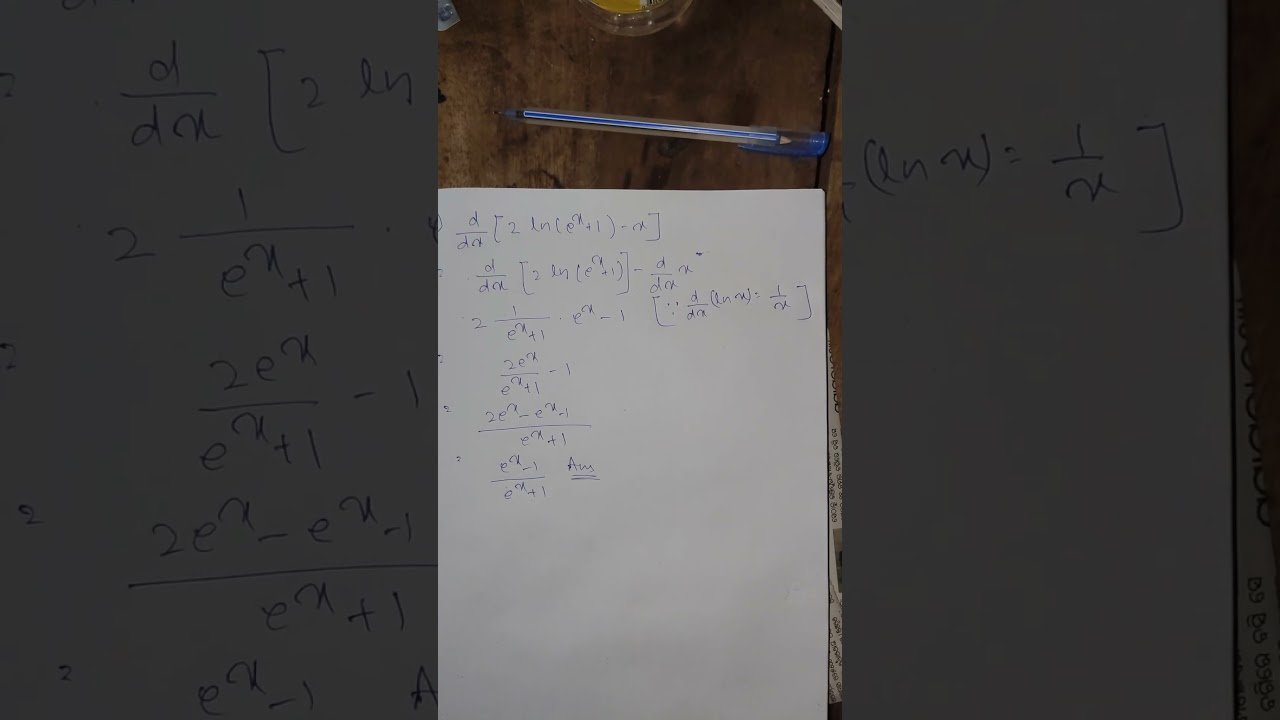 d/dx [2 ln(e^x+1) - x]
= d/dx [2 ln(e^x+1)] - d/dx x
2 1/(e^x+1) · e^x - 1 [∵ d/dx (ln x) = 1/x]
= 2e^x/(e^x+1) - 1
= (2e^x - e^x - 1)/(e^x+1)
= (e^x - 1)/(e^x+1) Ans